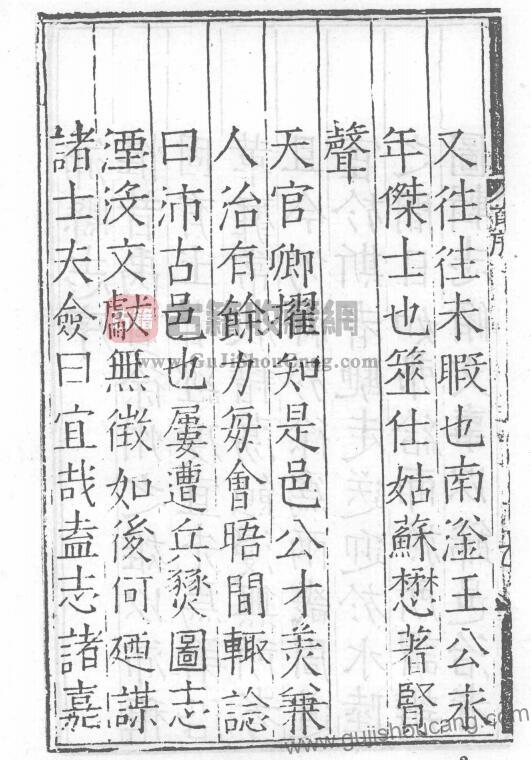 又往往未暇也南滏王公末
年傑士也筮仕姑蘇懋著賢
聲
天官卿擢知是邑公才羙兼
人治有餘力每會晤間輙諗
曰沛古邑也屢遭兵燹圖志
湮没文獻無徵如後何廼謀
諸士夫僉曰宜哉盍志諸嘉
古籍收藏網
www.GuJiShouCang.com
www.gujishoucang.com